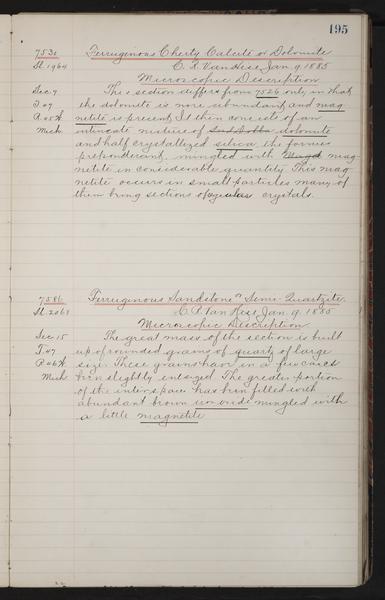 195
7530 Ferruginous Cherty Calcite or Dolomite
Sl. 1964 C. R. Van Hise Jan. 9, 1885
Microscopic Description
Sec. 9 This section differs from 7526 only in that
T. 47 the dolomite is more abundant, and mag
R. 45 W netite is present. It then consists of an
Mich intricate mixture of dolomite
and half crystallized silica, the former
preponderant, mingled with mag
netite in considerable quantity. This mag
netite occurs in small particles many of
them being sections of crystals.
7586 Ferruginous Sandstone or Semi-Quartzite
Sl. 2068 C. R. Van Hise Jan. 9. 1885
Microscopic Description
Sec. 15 The great mass of the section is built
T. 47 up of rounded grains of quartz of large
R 46 W size. These grains have in a few cases
Mich been slightly enlarged. The greater portion
of the interspace has been filled with
abundant brown iron oxide mingled with
a little magnetite